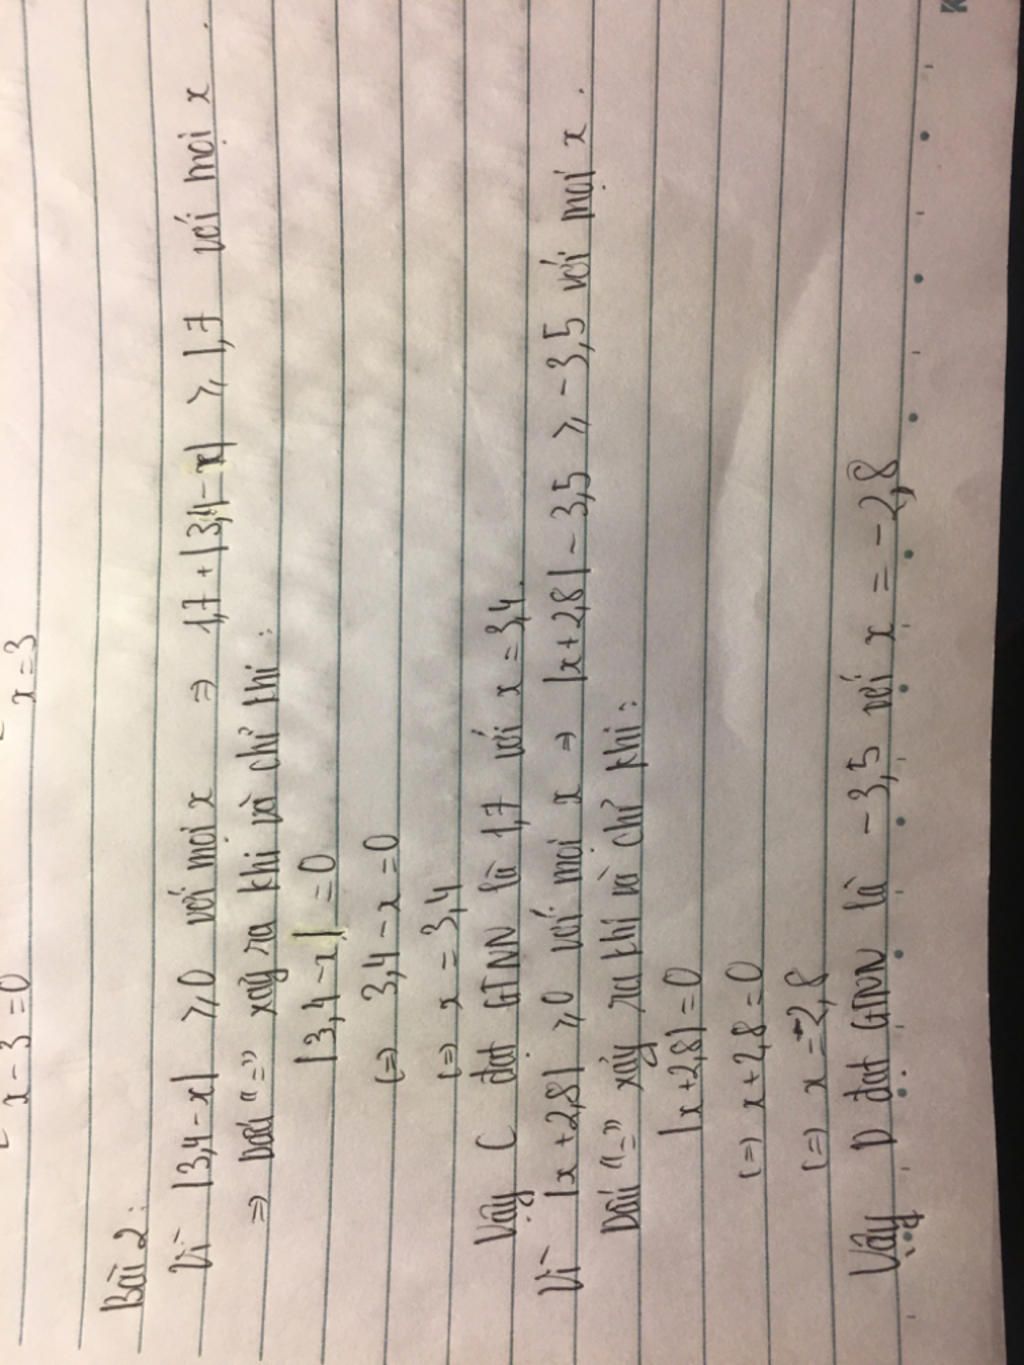 x - 3 = 0
x = 3
Bài 2:
Vì |3,4 - x| ⩾ 0 với mọi x ⇒ 1,7 + |3,4 - x| ⩾ 1,7 với mọi x.
⇒ Dấu "=" xảy ra khi và chỉ khi:
|3,4 - x| = 0
(=) 3,4 - x = 0
(=) x = 3,4
Vậy C đạt GTNN là 1,7 với x = 3,4.
Vì |x + 2,8| ⩾ 0 với mọi x ⇒ |x + 2,8| - 3,5 ⩾ -3,5 với mọi x.
Dấu "=" xảy ra khi và chỉ khi:
|x + 2,8| = 0
(=) x + 2,8 = 0
(=) x = -2,8
Vậy D đạt GTNN là -3,5 với x = -2,8